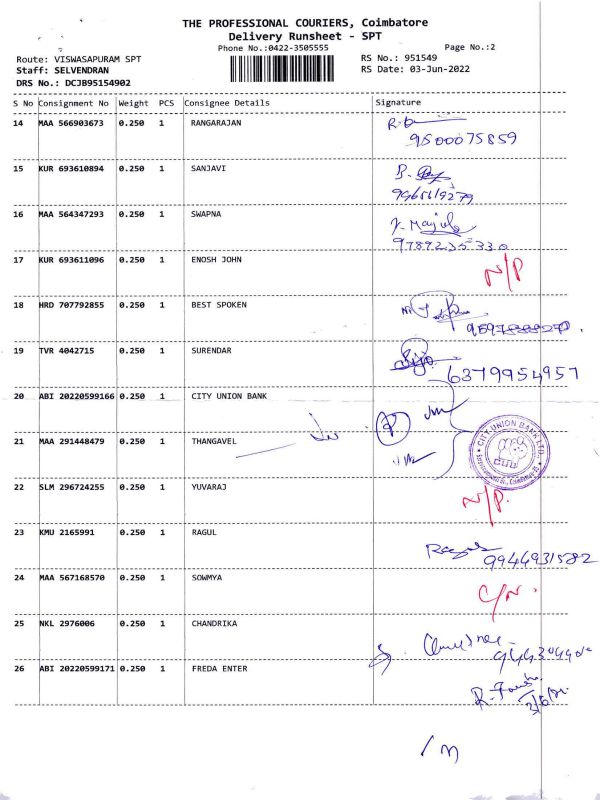 THE PROFESSIONAL COURIERS, Coimbatore
Delivery Runsheet - SPT
Phone No.:0422-3505555
Page No.:2
Route: VISWASAPURAM SPT
RS No.: 951549
Staff: SELVENDRAN
RS Date: 03-Jun-2022
DRS No.: DCJB95154902
S No Consignment No Weight PCS Consignee Details Signature
14 MAA 566903673 0.250 1 RANGARAJAN
9500075859
15 KUR 693610894 0.250 1 SANJAVI
16 MAA 564347293 0.250 1 SWAPNA
9789235330
17 KUR 693611096 0.250 1 ENOSH JOHN N/P
18 HRD 707792855 0.250 1 BEST SPOKEN
19 TVR 4042715 0.250 1 SURENDAR
6379954957
20 ABI 20220599166 0.250 1 CITY UNION BANK
CITY UNION BANK LTD.
CUB
21 MAA 291448479 0.250 1 THANGAVEL
22 SLM 296724255 0.250 1 YUVARAJ N/P.
23 KMU 2165991 0.250 1 RAGUL
9944931582
24 MAA 567168570 0.250 1 SOWMYA C/N.
25 NKL 2976006 0.250 1 CHANDRIKA
26 ABI 20220599171 0.250 1 FREDA ENTER